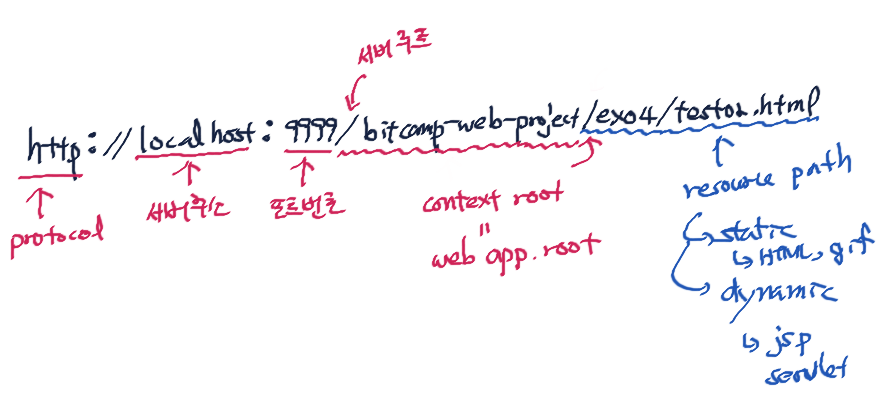 서버루트
http://localhost:9999/bitcamp-web-project/ex04/test01.html
protocol
서버주소
포트번호
context root
"
web app.root
resource path
static
↳ HTML, gif
dynamic
↳ jsp
servlet